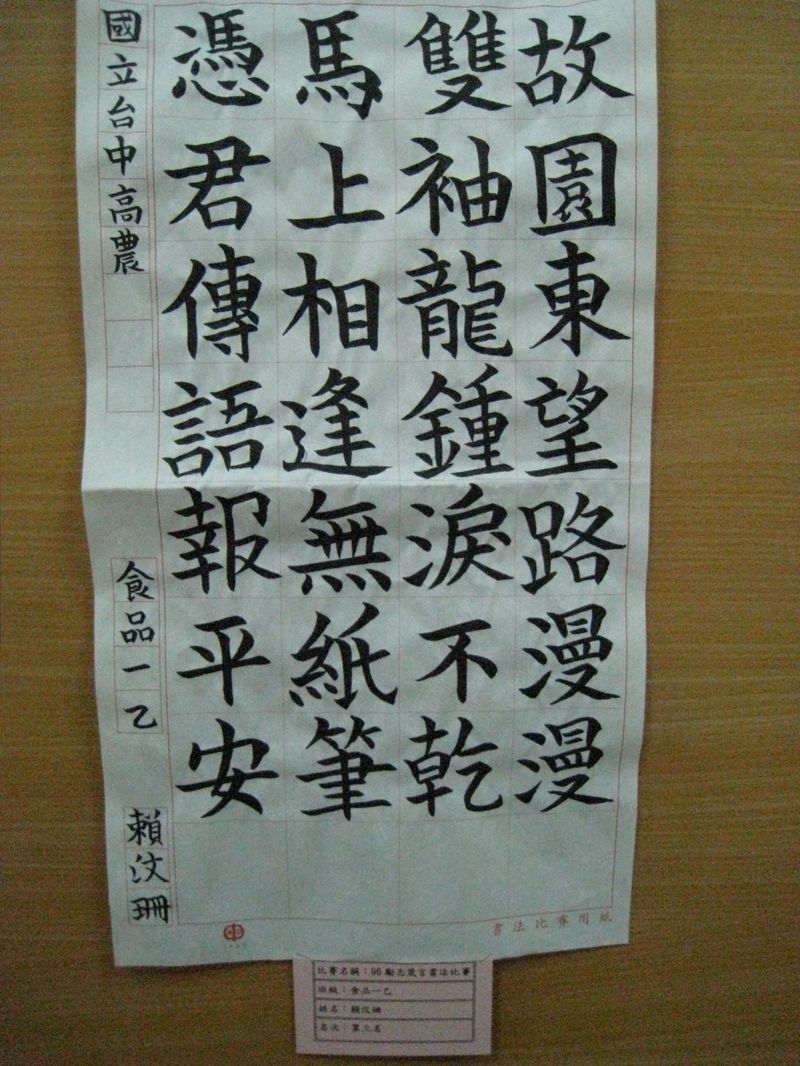 故園東望路漫漫
雙袖龍鍾淚不乾
馬上相逢無紙筆
憑君傳語報平安
國立台中高農
食品一乙
賴汶珊
書法比賽用紙
比賽名稱：96勵志箴言書法比賽
班級：食品一乙
姓名：賴汶珊
名次：第三名